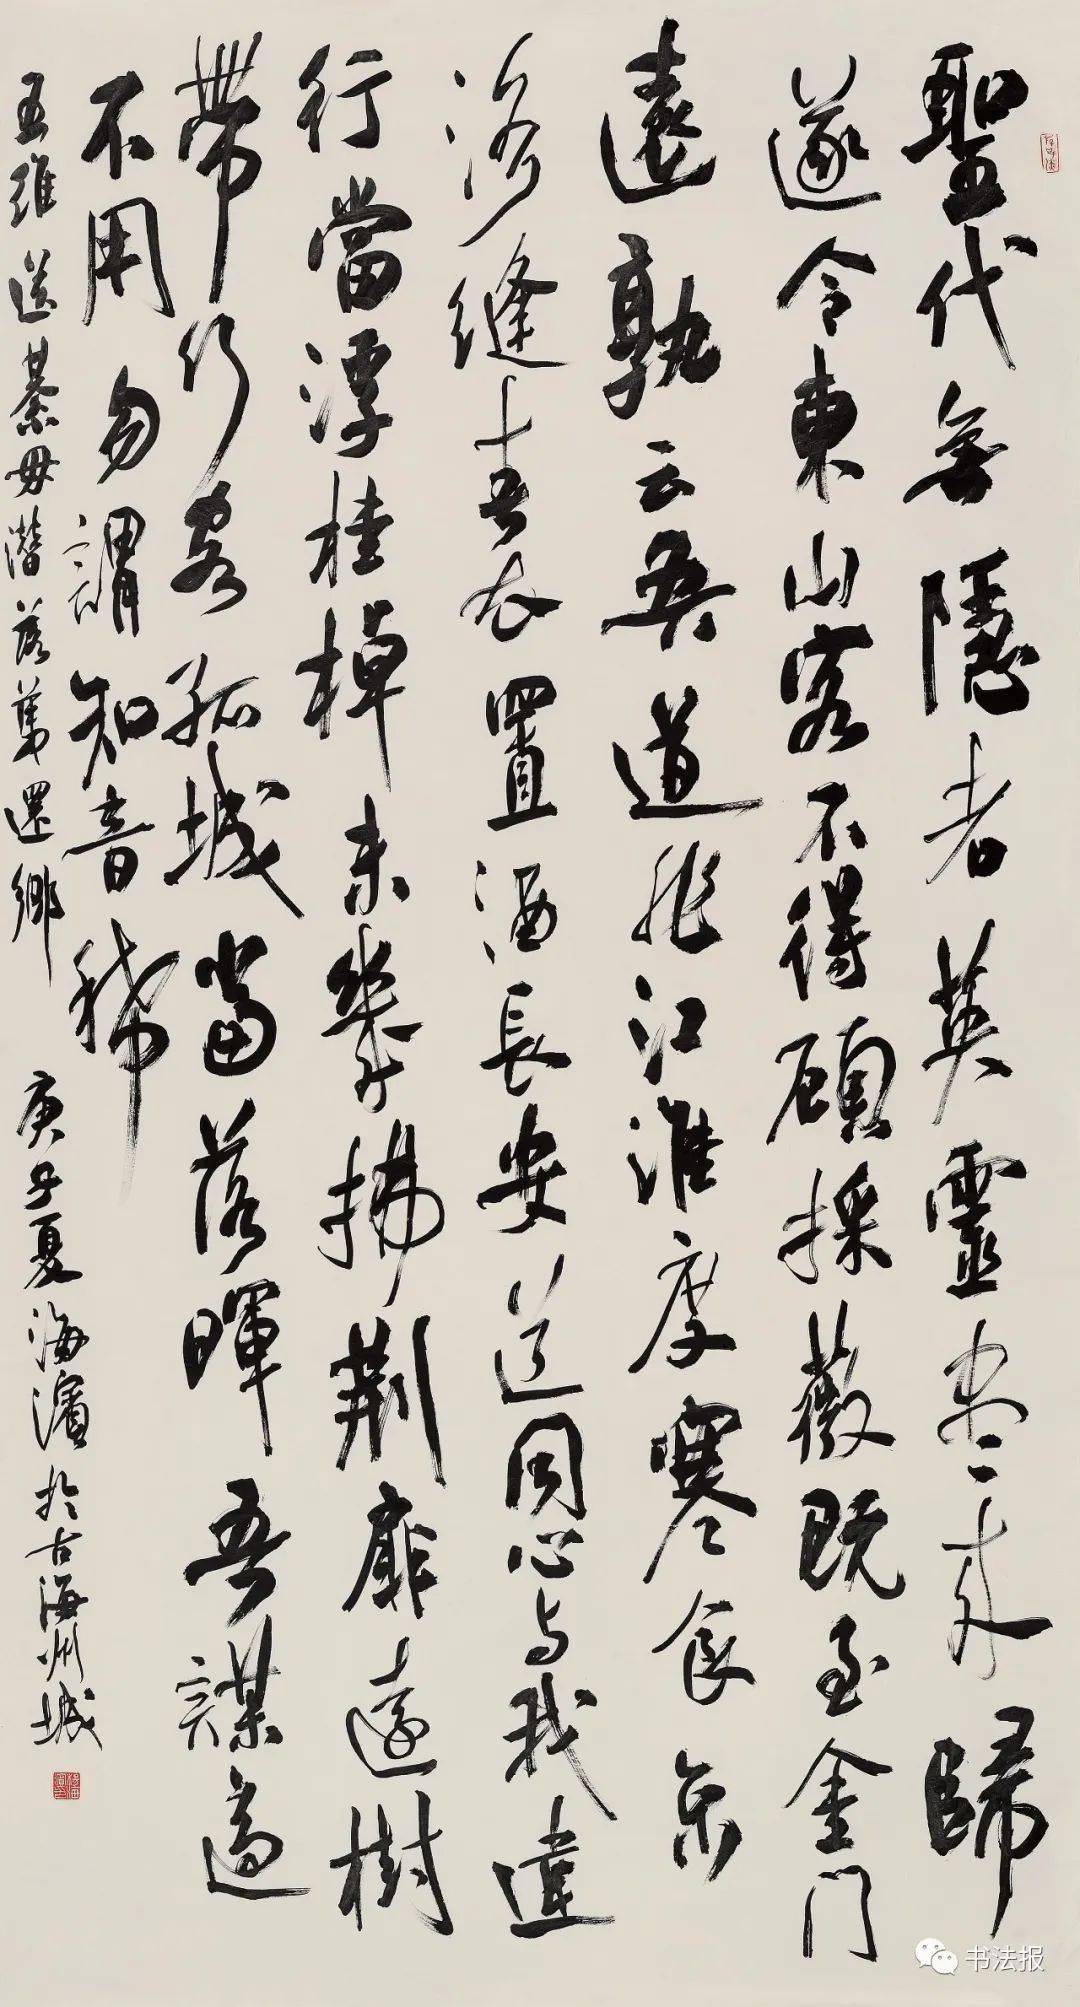 聖代無隱者英靈盡來歸
遂令東山客不得顧採薇既至金門
遠孰云吾道非江淮度寒食京
洛縫春衣置酒長安道同心與我違
行當浮桂棹未幾拂荆扉遠樹
帶行客孤城當落暉吾謀適
不用勿謂知音稀
王維送綦毋潛落第還鄉 庚子夏海濱於古海州城
书法报